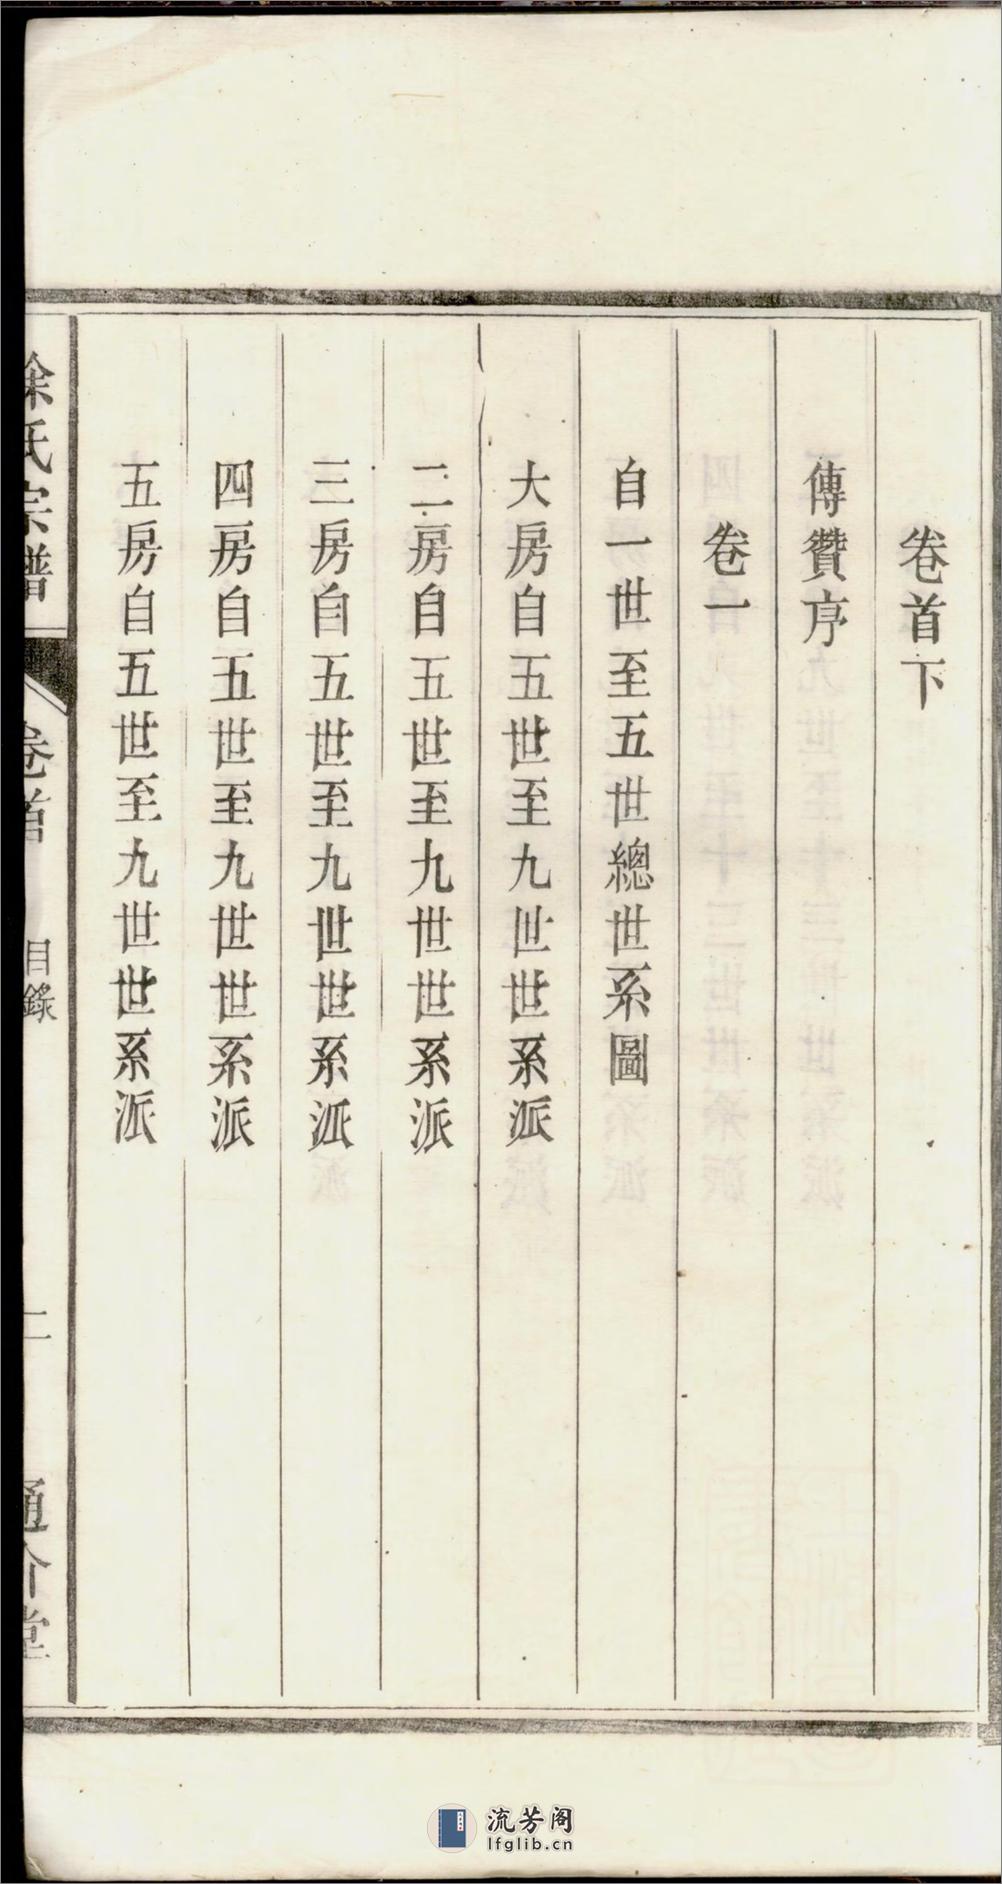 卷首下
傳贊序
卷一
自一世至五世總世系圖
大房自五世至九世世系派
二房自五世至九世世系派
三房自五世至九世世系派
四房自五世至九世世系派
五房自五世至九世世系派
徐氏宗譜
卷首
目錄
二
通介堂
流芳阁
lfglib.cn